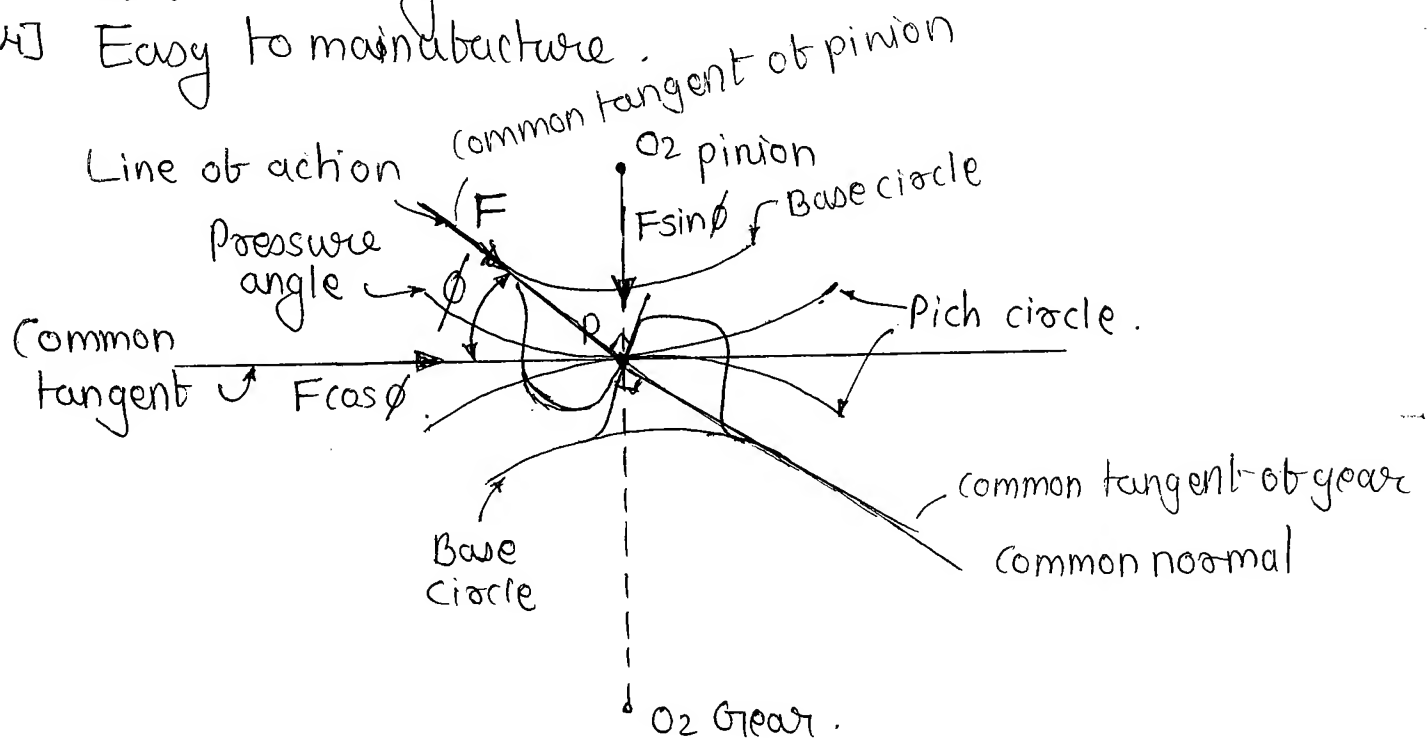 4] Easy to mainubacture.
Common tangent of pinion
Line of action
O2 pinion
F
Fsinϕ
Base circle
Pressure
angle
ϕ
P
Pich circle.
Common
tangent
Fcosϕ
Common tangent of gear
Common normal
Base
Circle
O2 Gear.